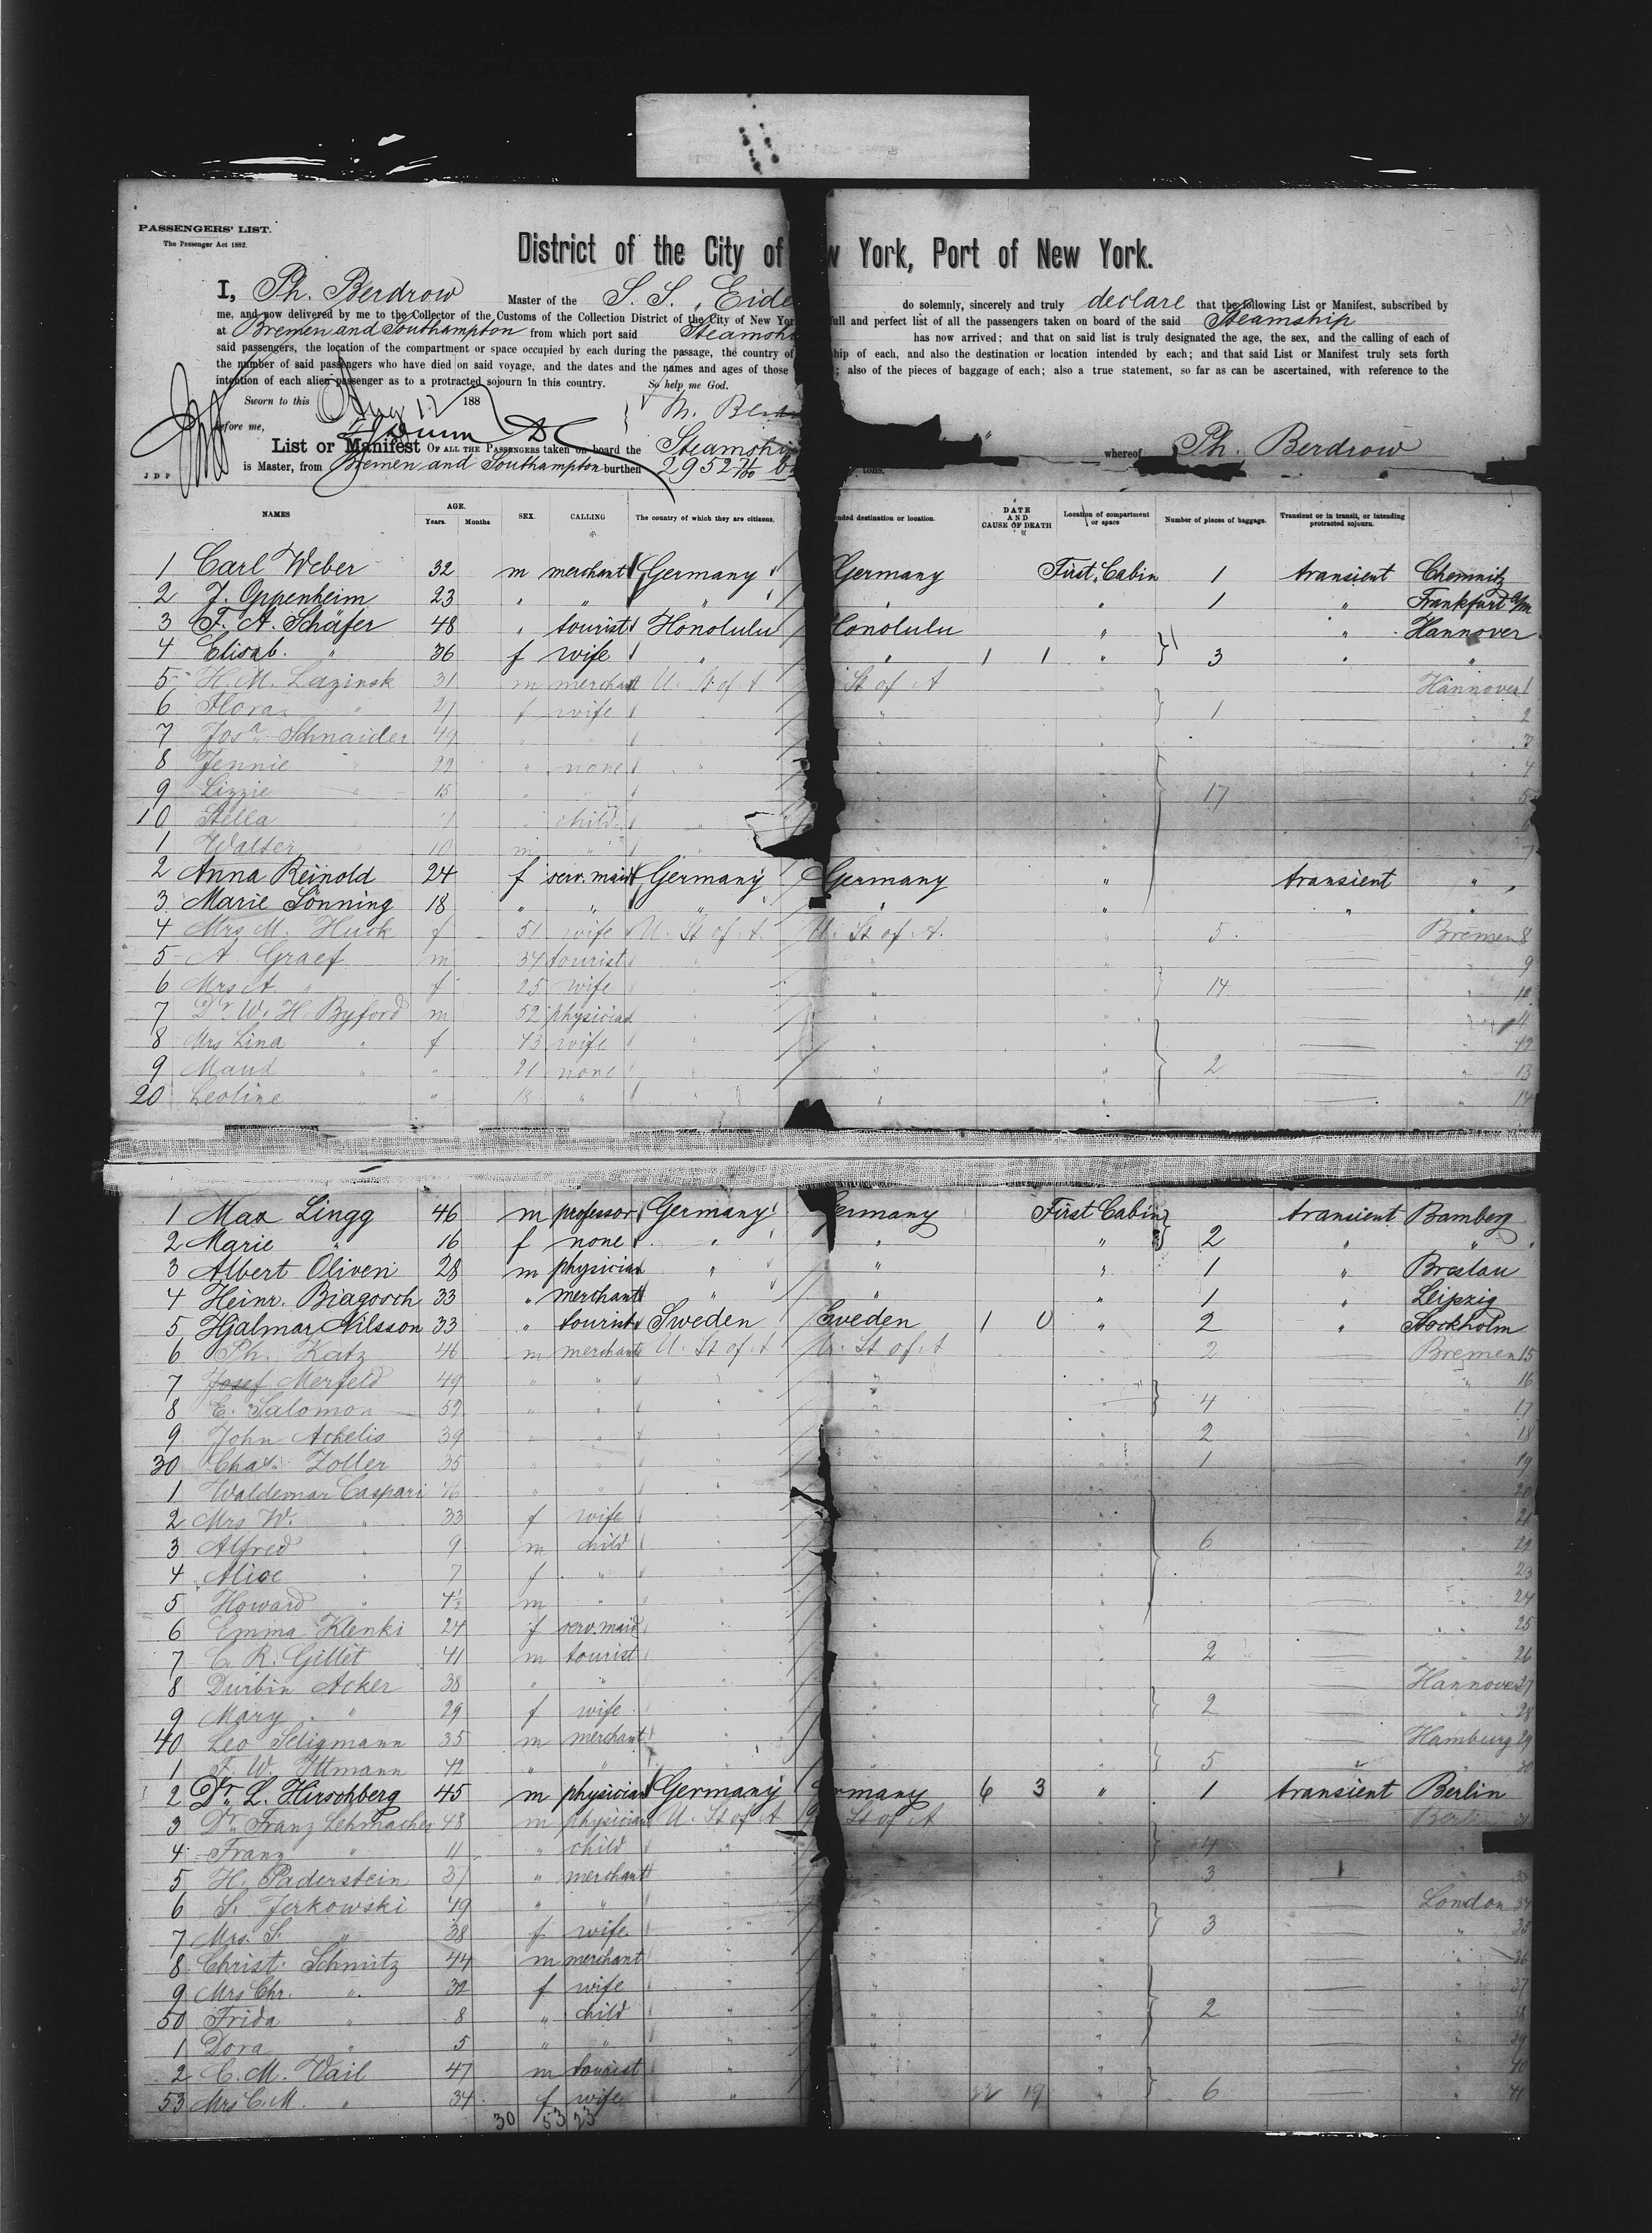 PASSENGERS' LIST.
The Passenger Act 1882.
District of the City of w York, Port of New York.
I, Ph. Berdrow Master of the S. S. „Eide do solemnly, sincerely and truly declare that the following List or Manifest, subscribed by
me, and now delivered by me to the Collector of the Customs of the Collection District of the City of New Yor full and perfect list of all the passengers taken on board of the said Steamship
at Bremen and Southampton from which port said Steamsh has now arrived; and that on said list is truly designated the age, the sex, and the calling of each of
said passengers, the location of the compartment or space occupied by each during the passage, the country of hip of each, and also the destination or location intended by each; and that said List or Manifest truly sets forth
the number of said passengers who have died on said voyage, and the dates and the names and ages of those ; also of the pieces of baggage of each; also a true statement, so far as can be ascertained, with reference to the
intention of each alien passenger as to a protracted sojourn in this country. So help me God.
Sworn to this Aug 17 188
before me,
List or Manifest OF ALL THE PASSENGERS taken on board the Steamship " whereof Ph. Berdrow
J D P is Master, from Bremen and Southampton burthen 2952 tons.
NAMES AGE. Years. Months SEX. CALLING The country of which they are citizens. nded destination or location. DATE AND CAUSE OF DEATH Location of compartment or space Number of pieces of baggage. Transient or in transit, or intending protracted sojourn.
1 Carl Weber 32 m merchant Germany Germany First Cabin 1 transient Chemnitz
2 J. Oppenheim 23 " " " " " 1 " Frankfurt a/m
3 F. A. Schäfer 48 " tourist Honolulu Honolulu " " Hannover
4 Elisab. " 36 f wife " " 1 1 " 3 " "
5 H. M. Lazinsk 31 m merchant U. St of A St of A " Hannover 1
6 Flora " 21 f wife " " " 1 " 2
7 Josa Schnaider 49 " " " " " " 3
8 Jennie " 22 " none " " " " 4
9 Lizzie " 15 " " " " " 17 " 5
10 Stella " child " " "
1 Walter " 10 m " " " " 7
2 Anna Reinold 24 f serv. maid Germany Germany " transient "
3 Marie Sönning 18 " " " " " " "
4 Mrs M. Huck f 51 wife U. St of A. U. St of A. " 5 Bremen 8
5 A Graef m 34 tourist " " " " 9
6 Mrs A. " f 25 wife " " " 14 " 10
7 Dr W. H. Byford m 52 physician " " " " 11
8 Mrs Lina " f 43 wife " " " " 12
9 Maud " " 21 none " " " 2 " 13
20 Leoline " " 18 " " " " " 14
1 Max Lingg 46 m professor Germany Germany First Cabin transient Bamberg
2 Marie " 16 f none " " " 2 " "
3 Albert Oliven 28 m physician " " " 1 " Breslau
4 Heinr. Biagosch 33 " merchant " " " 1 " Leipzig
5 Hjalmar Nilsson 33 " tourist Sweden Sweden 1 0 " 2 " Stockholm
6 Ph. Katz 46 m merchant U. St of A U. St of A " 2 Bremen 15
7 Josef Merfeld 49 " " " " " " 16
8 E. Salomon 52 " " " " " 4 " 17
9 John Achelis 39 " " " " " 2 " 18
30 Chas. Zoller 35 " " " " " 1 " 19
1 Waldemar Caspari 46 " " " " " " 20
2 Mrs W. " 33 f wife " " " " 21
3 Alfred " 9 m child " " " 6 " 22
4 Alice " 7 f " " " " " 23
5 Howard " 4½ m " " " " " 24
6 Emma Klenki 24 f serv. maid " " " " 25
7 C. R. Gillet 41 m tourist " " " 2 " 26
8 Durbin Acker 38 " " " " " Hannover 27
9 Mary " 29 f wife " " " 2 " 28
40 Leo Seligmann 35 m merchant " " " Hamburg 29
1 F. W. Ittmann 42 " " " " " 5 " 30
2 Dr. L. Hirschberg 45 m physician Germany rmany 6 3 " 1 transient Berlin
3 Dr. Franz Lehmacher 48 m physician U. St of A St of A " Berlin 31
4 Franz " 11 " child " " " 4
5 H. Paderstein 37 " merchant " " " 3 " 33
6 S. Jerkowski 49 " " " " " London 34
7 Mrs. S. " 38 f wife " " " 3 " 35
8 Christ. Schmitz 44 m merchant " " " " 36
9 Mrs Chr. " 32 f wife " " " " 37
50 Frida " 8 " child " " " 2 " 38
1 Dora " 5 " " " " " " 39
2 C. M. Vail 47 m tourist " " " " 40
53 Mrs C. M. " 34 f wife " " 22 19 " 6 " 41
30 53 23